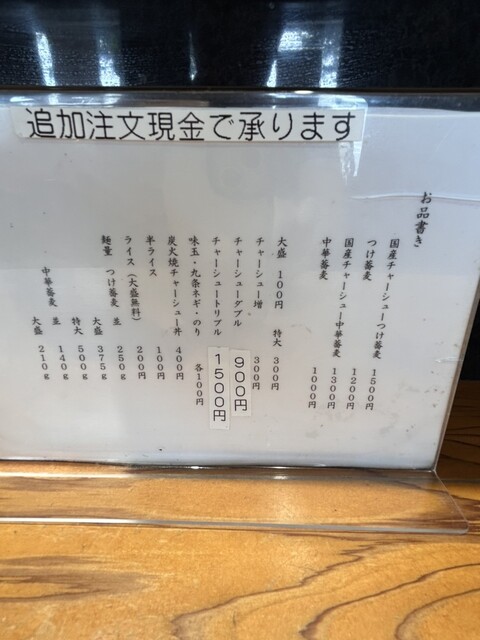 追加注文現金で承ります
お品書き
国産チャーシューつけ蕎麦 1500円
つけ蕎麦 1200円
国産チャーシュー中華蕎麦 1300円
中華蕎麦 1000円
大盛 100円 特大 300円
チャーシュー増 300円
チャーシューダブル 900円
チャーシュートリプル 1500円
味玉・九条ネギ・のり 各100円
炭火焼チャーシュー丼 400円
半ライス 100円
ライス(大盛無料) 200円
麺量 つけ蕎麦 並 250g
大盛 375g
特大 500g
中華蕎麦 並 140g
大盛 210g